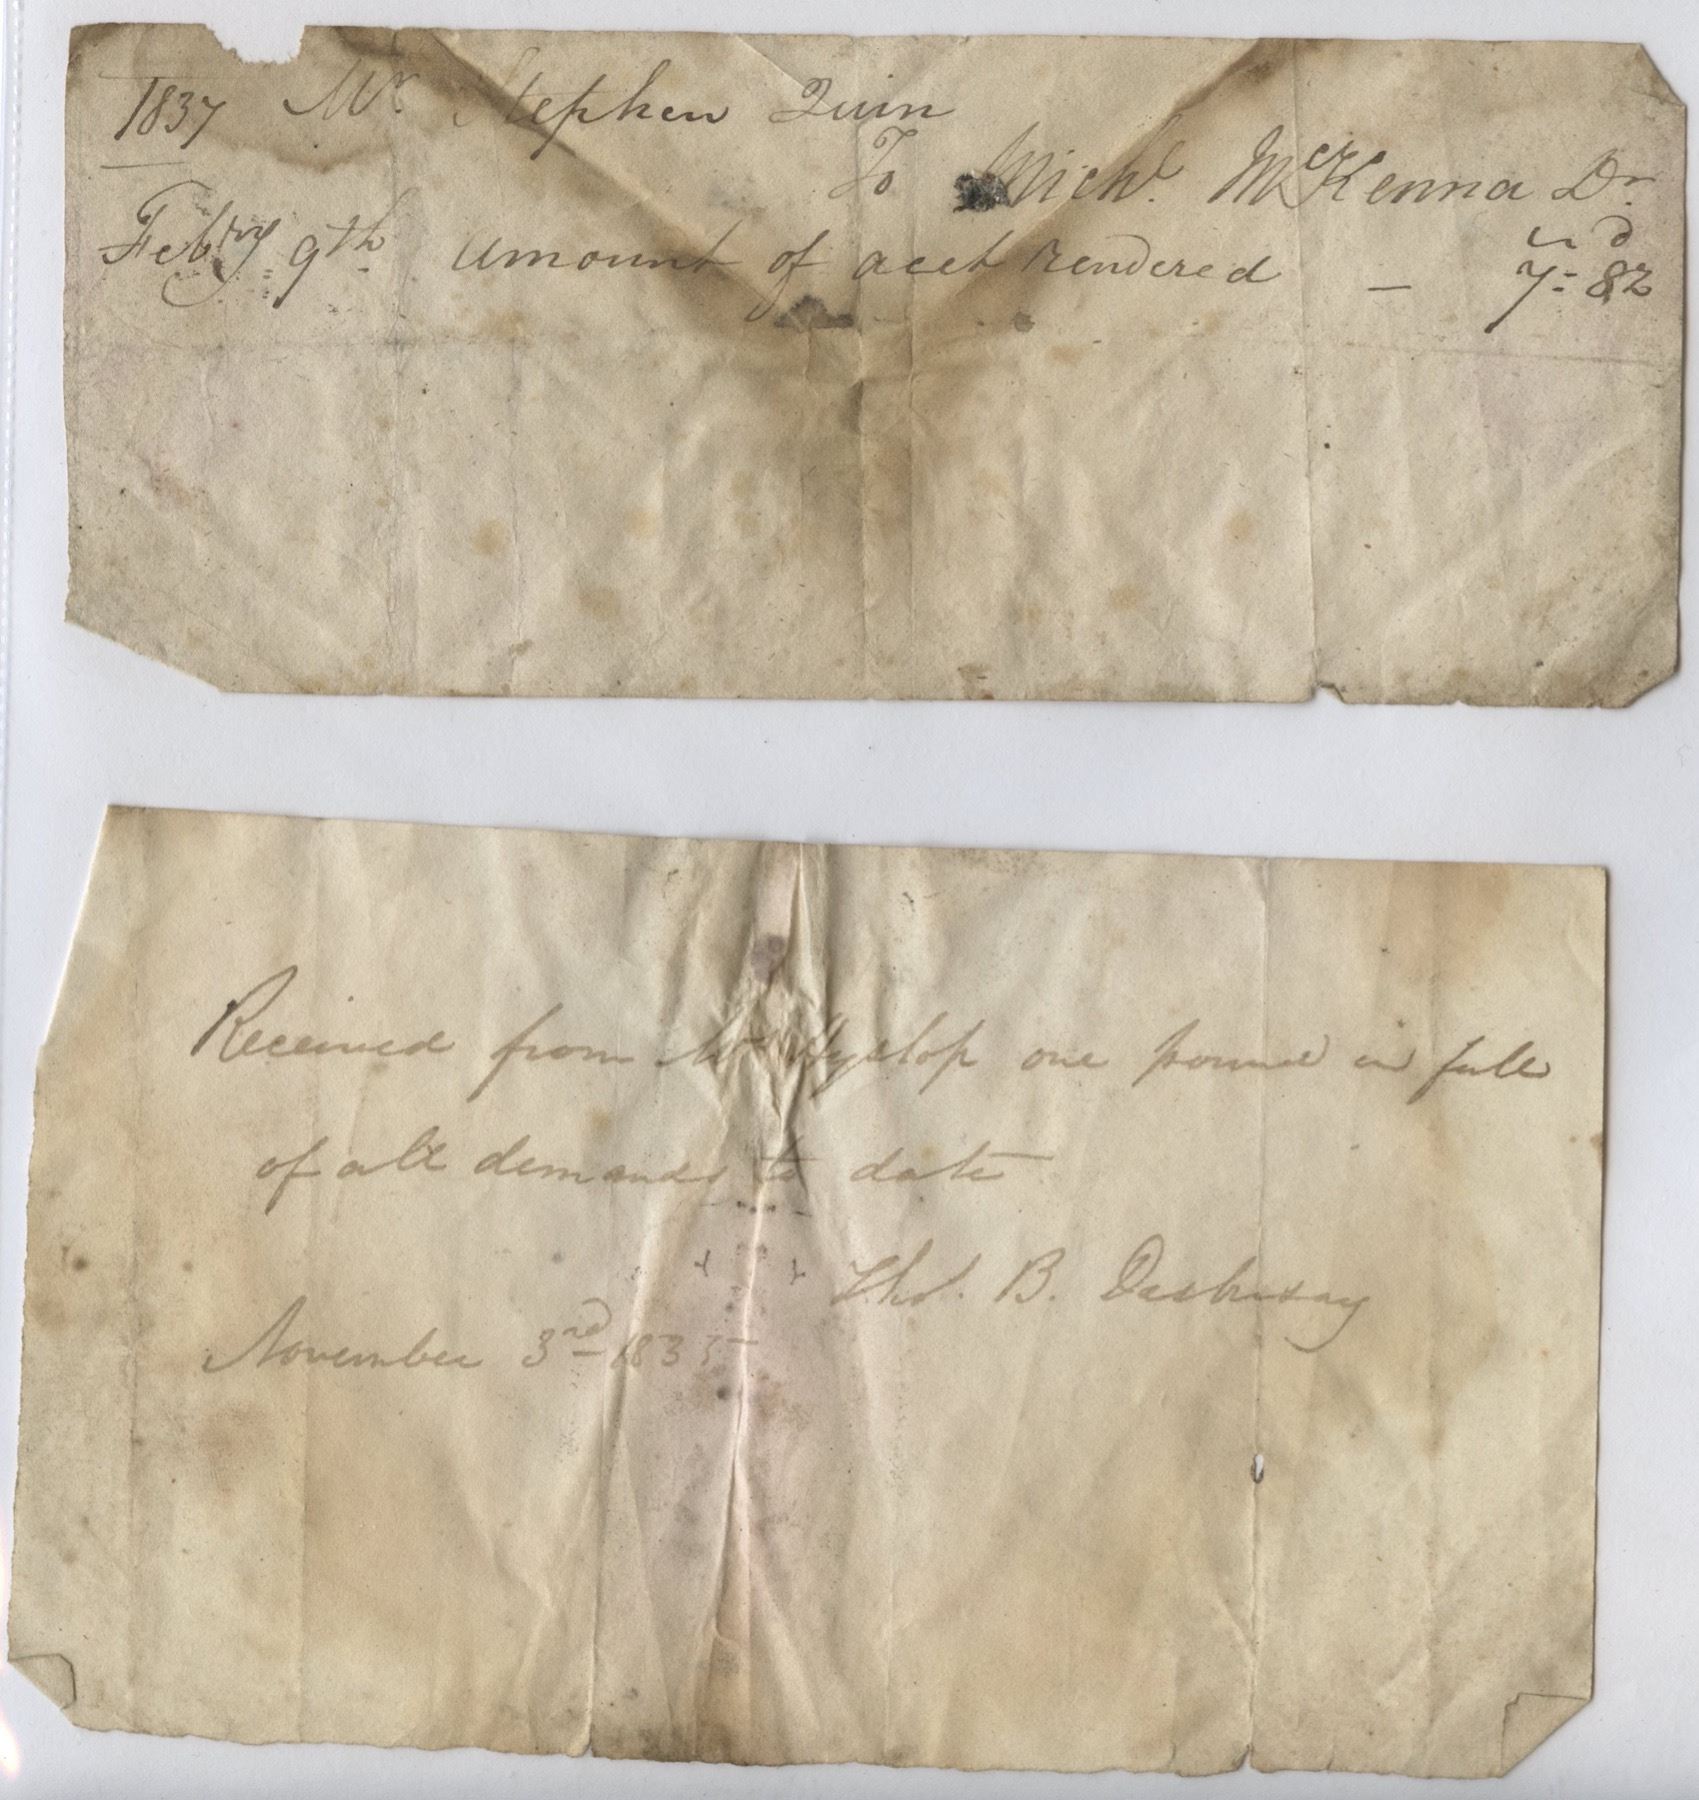 1837 Mr. Stephen Quin
To Michl. McKenna Dr.
s d
Febry 9th amount of acct rendered — 7=8½
Received from Mr Hyslop one pound in full
of all demands to date
Thos. B. Desbrisay
November 3rd 1835